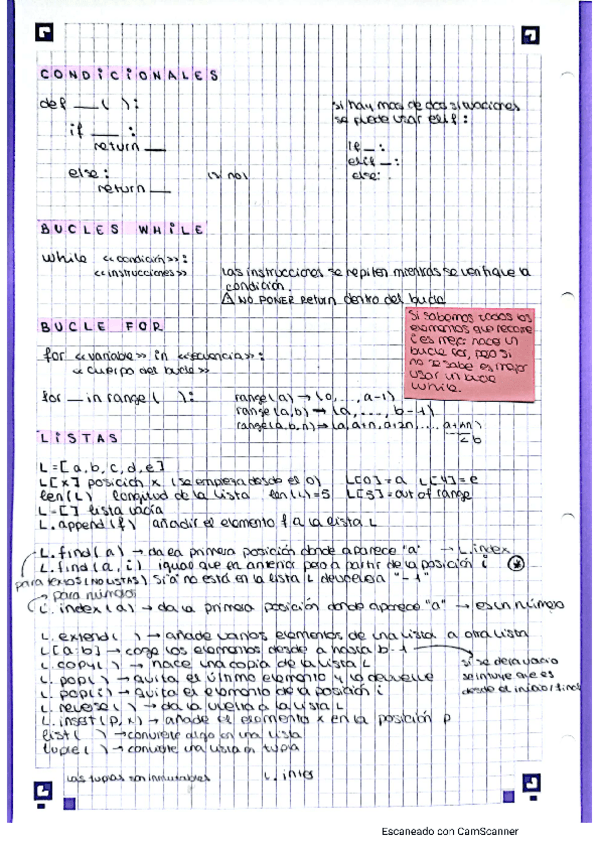 CONDICIONALES
def ___ ( ):
if ___ :
return ___
else:
return ___
si hay mas de dos situaciones
se puede usar elif:
if _:
elif _:
else:
BUCLES WHILE
while «condición»:
«instrucciones»
Las instrucciones se repiten mientras se verifique la
condición.
⚠ NO PONER Return dentro del bucle
BUCLE FOR
for «variable» in «secuencia»:
«cuerpo del bucle»
for __ in range ( ):
range(a) → (0, ..., a-1)
range(a,b) → (a, ..., b-1)
range(a,b,n) → (a, a+n, a+2n, ... a+nn)
<b
Si sabemos todos los
elementos que recorre
es mejor hace un
bucle for, pero si
no se sabe es mejor
usar un bucle
while.
LISTAS
L = [a, b, c, d, e]
L[x] posición x (se empieza desde el 0) L[0]=a L[4]=e
len(L) longitud de la lista len(L)=5 L[5]=out of range
L=[] lista vacía
L.append(f) añadir el elemento f a la lista L
L.find(a) → da la primera posición donde aparece "a" → L.index
L.find(a, i) igual que la anterior pero a partir de la posición i
para textos (NO LISTAS). Si a no está en la lista L devuelve "-1"
para números
L.index(a) → da la primera posición donde aparece "a" → es un número
L.extend( ) → añade varios elementos de una lista a otra lista
L[a:b] → coge los elementos desde a hasta b-1
L.copy( ) → hace una copia de la lista L
L.pop( ) → quita el último elemento y lo devuelve
L.pop(i) → quita el elemento de la posición i
L.reverse( ) → da la vuelta a la lista L
L.insert(p,x) → añade el elemento x en la posición p
list( ) → convierte algo en una lista
tuple( ) → convierte una lista en tupla
si se deja vacío
se intuye que es
desde el inicio/final
Las tuplas son inmutables
Escaneado con CamScanner